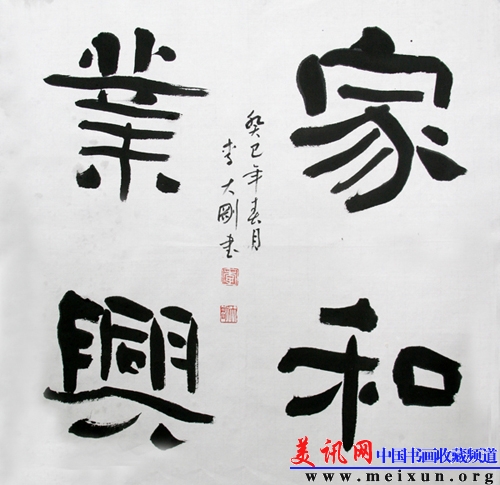 家和
業興
癸巳年春月
李大剛书
美讯网
中国书画收藏频道
www.meixun.org